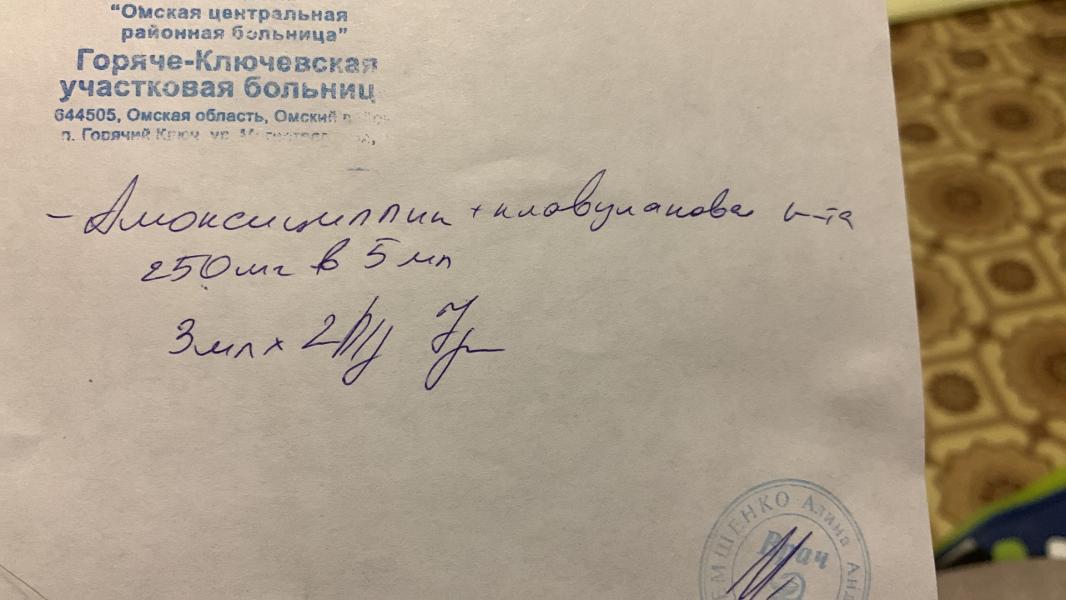 “Омская центральная
районная больница”
Горяче-Ключевская
участковая больниц
644505, Омская область, Омский
п. Горячий Ключ, ул.
- Амоксициллин + клавулановая к-та
250мг в 5 мл
3мл х 2 р/д 7
ЕМШЕНКО Алина Анд
Врач